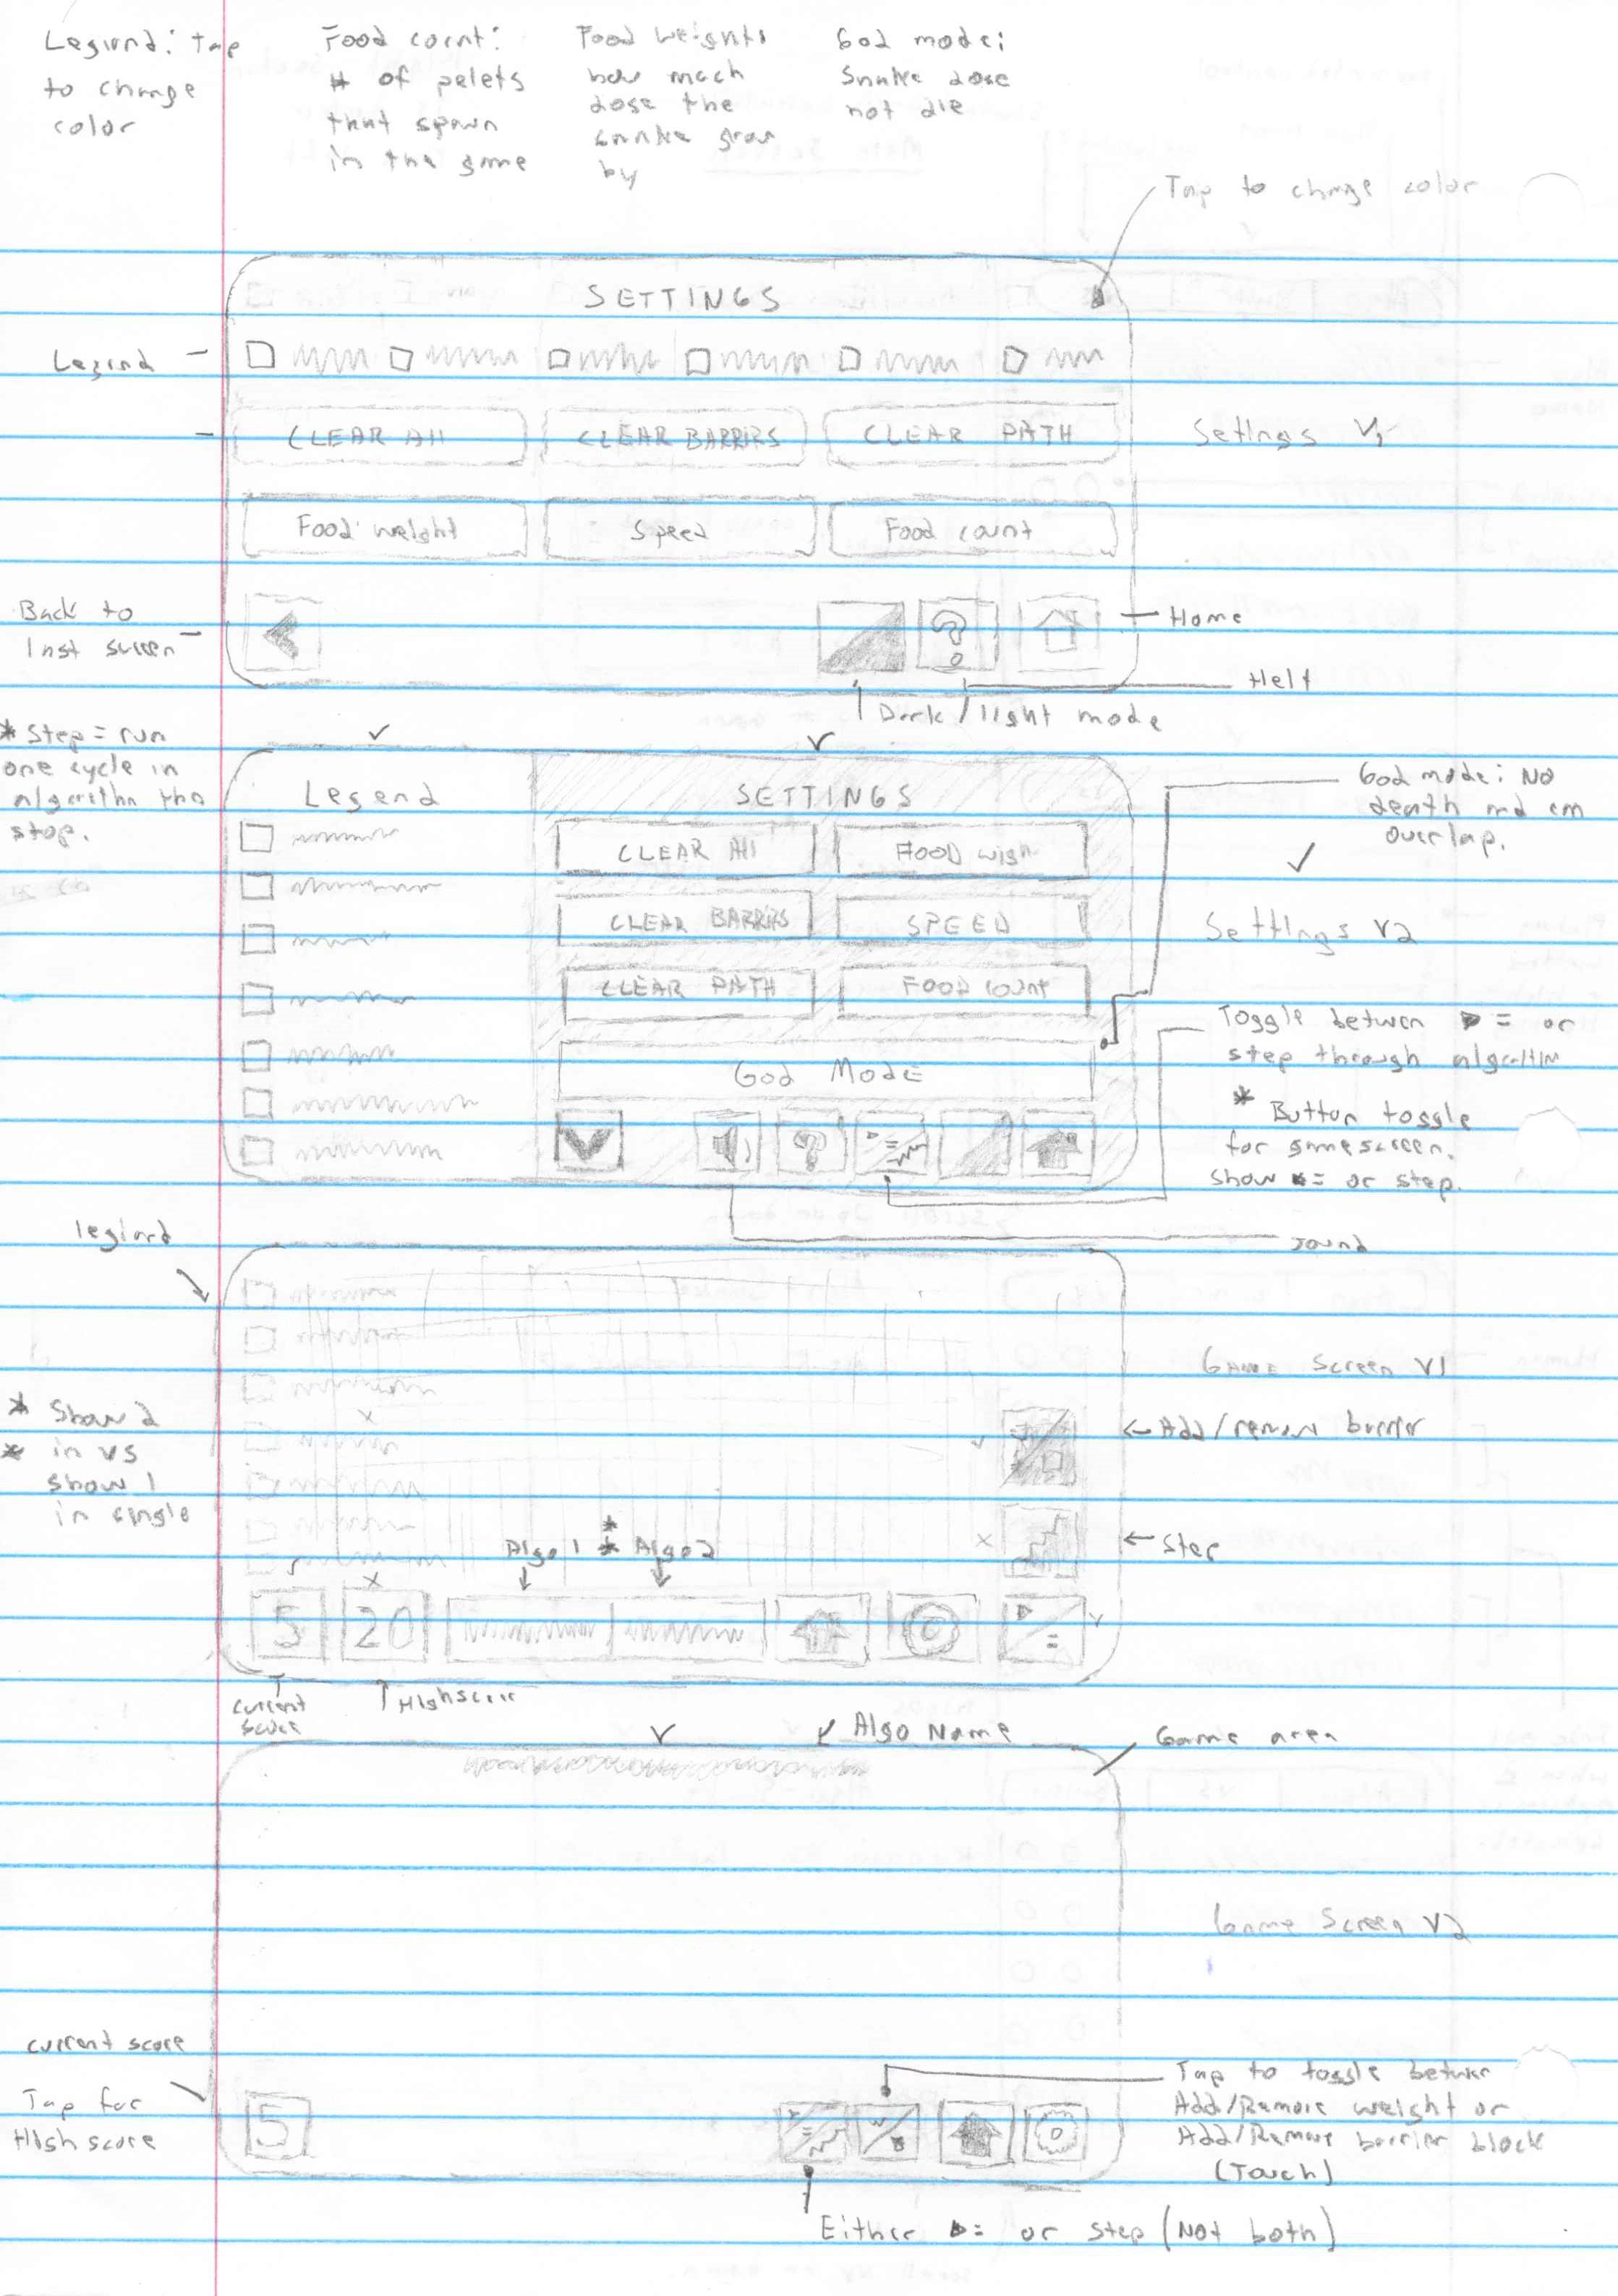 Legiond: tap
to change
color
Food count:
# of pelets
that spawn
in the game
Food weights
how much
dose the
snake grow
by
God mode:
Snake dose
not die
Tap to change color
SETTINGS
Legind
CLEAR All
CLEAR BARRIRS
CLEAR PATH
Setings V1
Food weight
Speed
Food count
Back to
last screen
Home
Help
Dark / light mode
* Step = run
one cycle in
algorithm tha
stop.
Legend
SETTINGS
CLEAR All
FOOD wigh
CLEAR BARRIRS
SPEED
CLEAR PATH
FOOD count
God MODE
God mode: No
death and can
overlap.
Settings V2
Toggle betwen ▶ = or
step through
* Button toggle
for gamescreen.
Show = or step.
sound
legiond
GAME Screen V1
* Show 2
* in VS
show 1
in single
←Add/remove barrier
←Step
Algo 1 * Algo 2
5
20
current
score
Highscore
Algo Name
Game area
Game Screen V2
current score
Tap for
High score
5
Tap to toggle betwen
Add/Remove weight or
Add/Remove barrier block
(Touch)
Either ▶= or step (Not both)